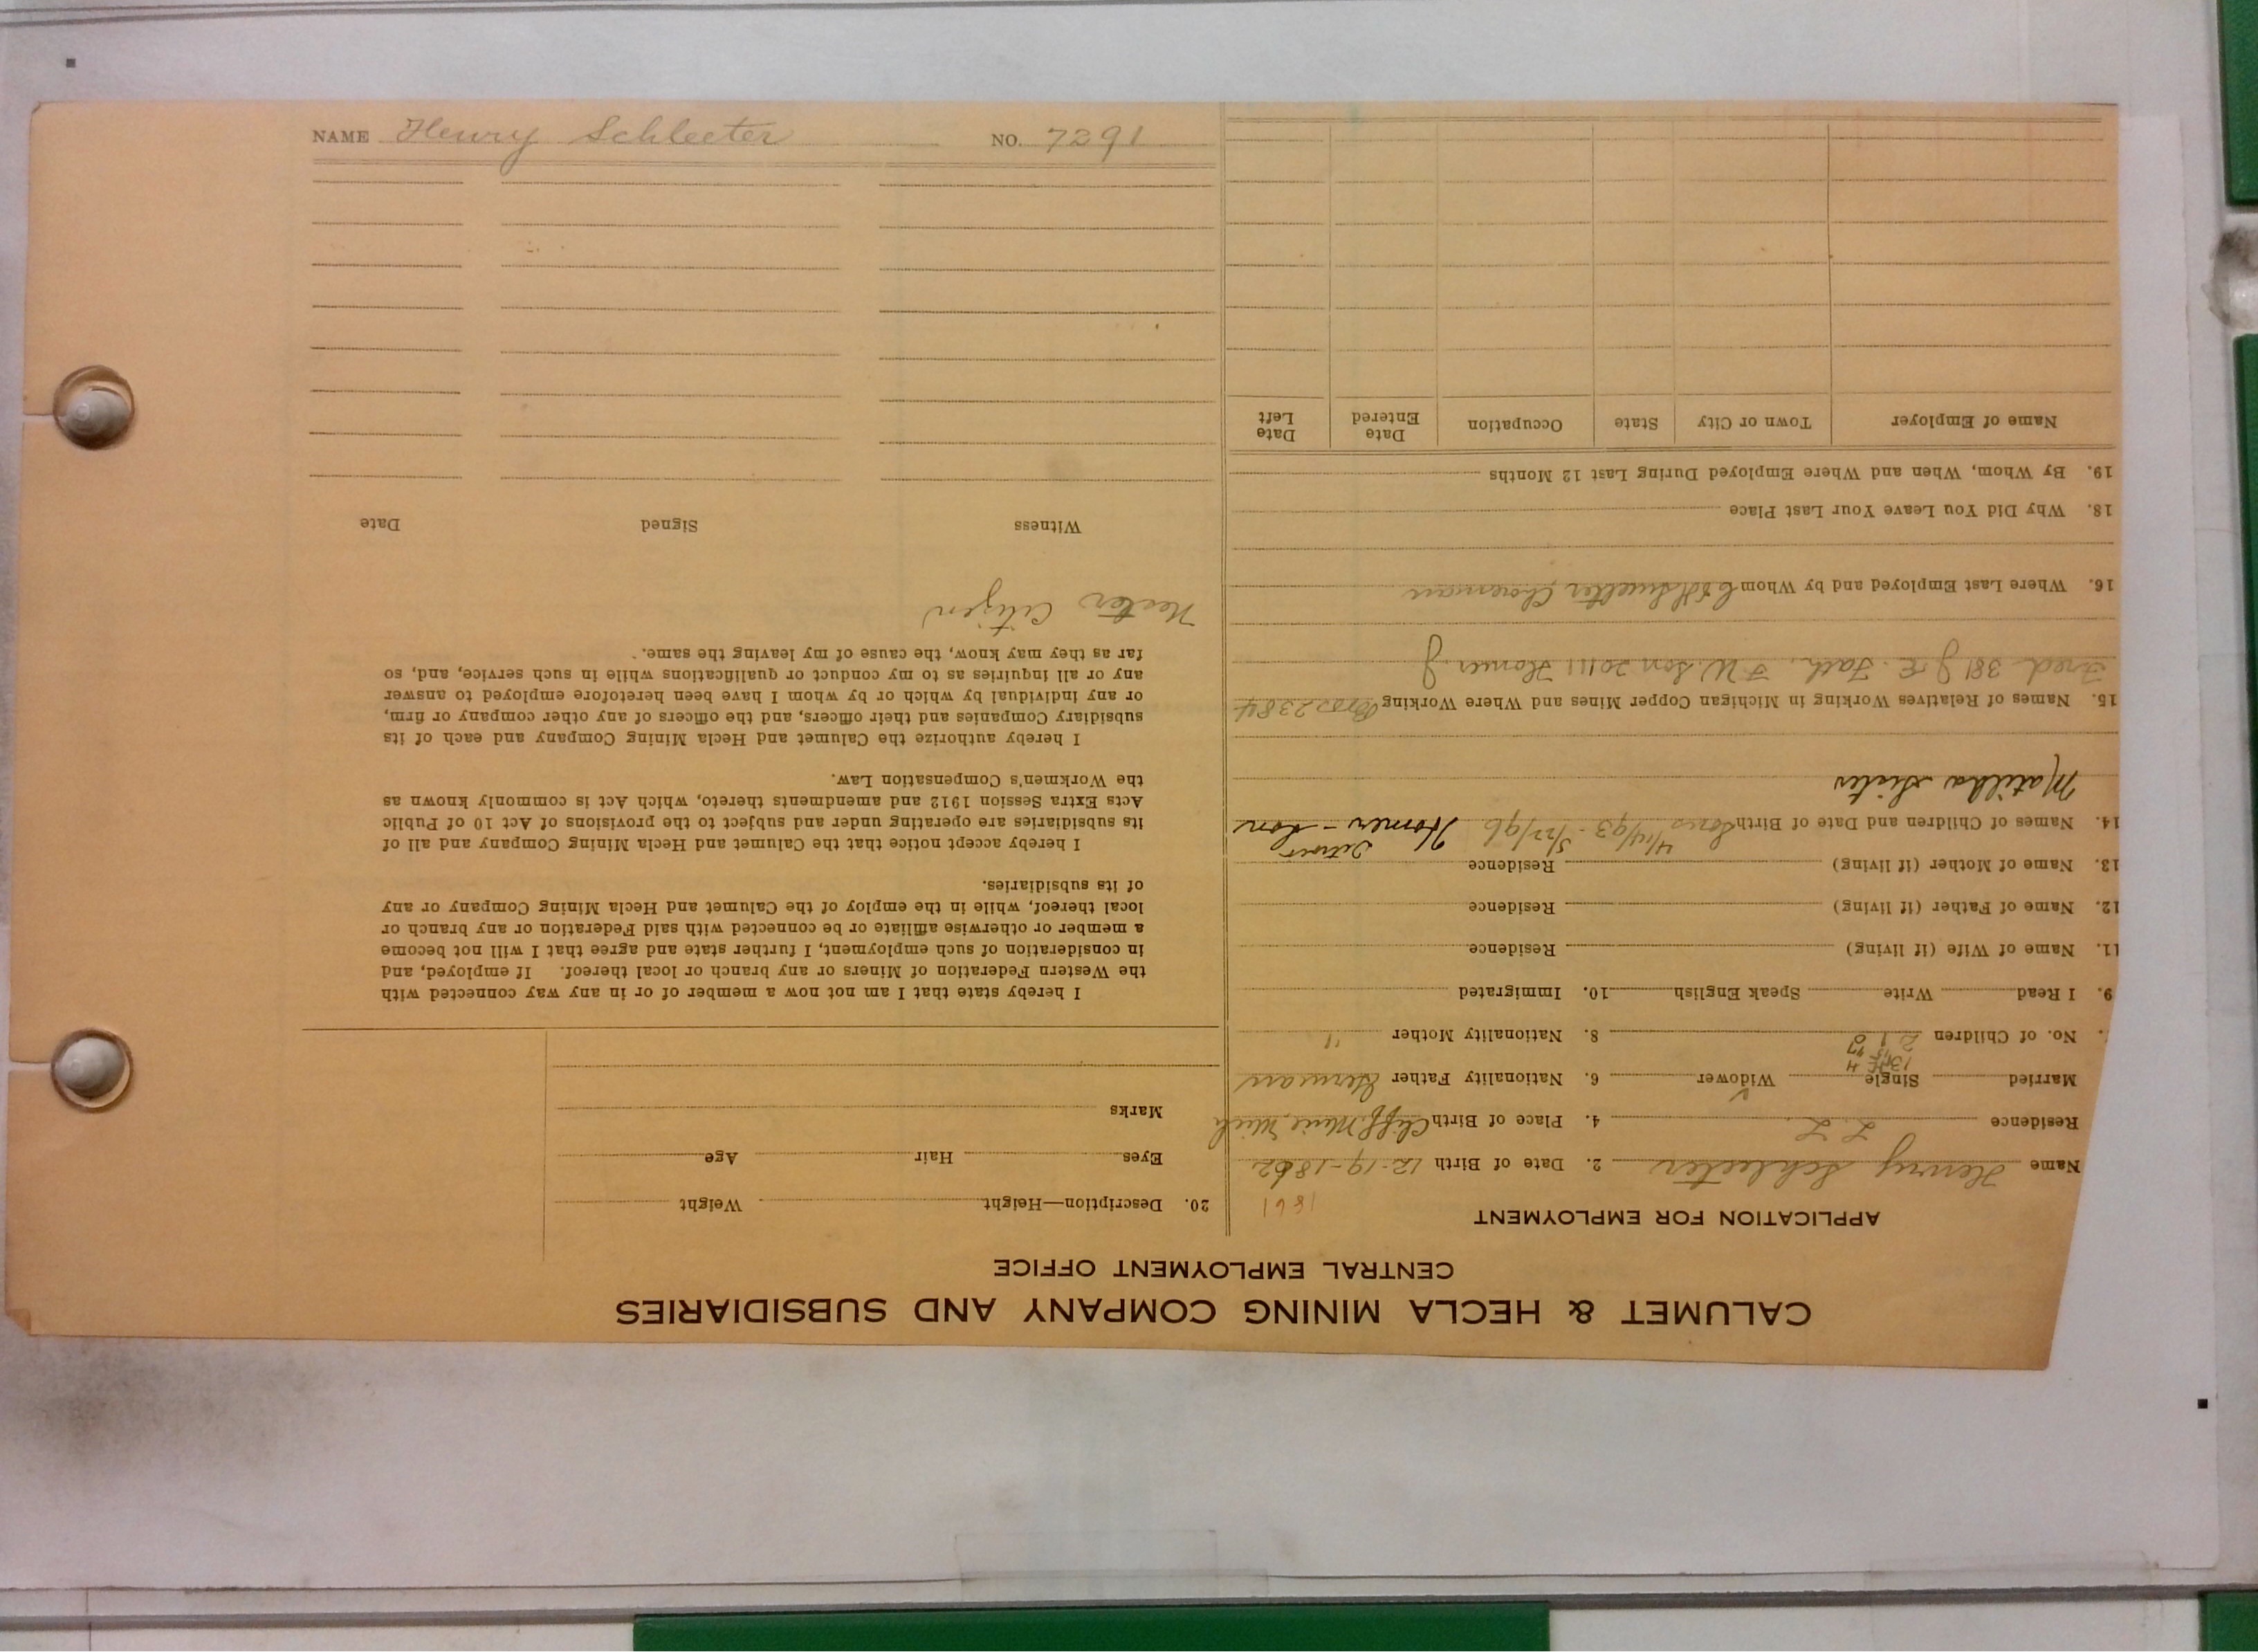 CALUMET & HECLA MINING COMPANY AND SUBSIDIARIES
CENTRAL EMPLOYMENT OFFICE
APPLICATION FOR EMPLOYMENT
1861
Name Henry Schleeter 2. Date of Birth 12-19-1862
Residence L. L. 4. Place of Birth Cliff Mine, Mich
Married Single Widower ✓ 6. Nationality Father German
No. of Children 2 8. Nationality Mother "
9. I Read Write Speak English 10. Immigrated
11. Name of Wife (if living) Residence
12. Name of Father (if living) Residence
13. Name of Mother (if living) Residence
Detroit
14. Names of Children and Date of Birth Sons 4/14/93 - 5/22/96 Homer - son
Matilda sister
15. Names of Relatives Working in Michigan Copper Mines and Where Working Bros 2384
Fred 381 J. E. Fath. F W. Son 20111 Homer J
16. Where Last Employed and by Whom C&H Smelter
18. Why Did You Leave Your Last Place
19. By Whom, When and Where Employed During Last 12 Months
Name of Employer Town or City State Occupation Date Entered Date Left
20. Description—Height Weight
Eyes Hair Age
Marks
I hereby state that I am not now a member of or in any way connected with
the Western Federation of Miners or any branch or local thereof. If employed, and
in consideration of such employment, I further state and agree that I will not become
a member or otherwise affiliate or be connected with said Federation or any branch or
local thereof, while in the employ of the Calumet and Hecla Mining Company or any
of its subsidiaries.
I hereby accept notice that the Calumet and Hecla Mining Company and all of
its subsidiaries are operating under and subject to the provisions of Act 10 of Public
Acts Extra Session 1912 and amendments thereto, which Act is commonly known as
the Workmen's Compensation Law.
I hereby authorize the Calumet and Hecla Mining Company and each of its
subsidiary Companies and their officers, and the officers of any other company or firm,
or any individual by which or by whom I have been heretofore employed to answer
any or all inquiries as to my conduct or qualifications while in such service, and, so
far as they may know, the cause of my leaving the same.
Citizen
Witness Signed Date
NAME Henry Schleeter NO. 7291